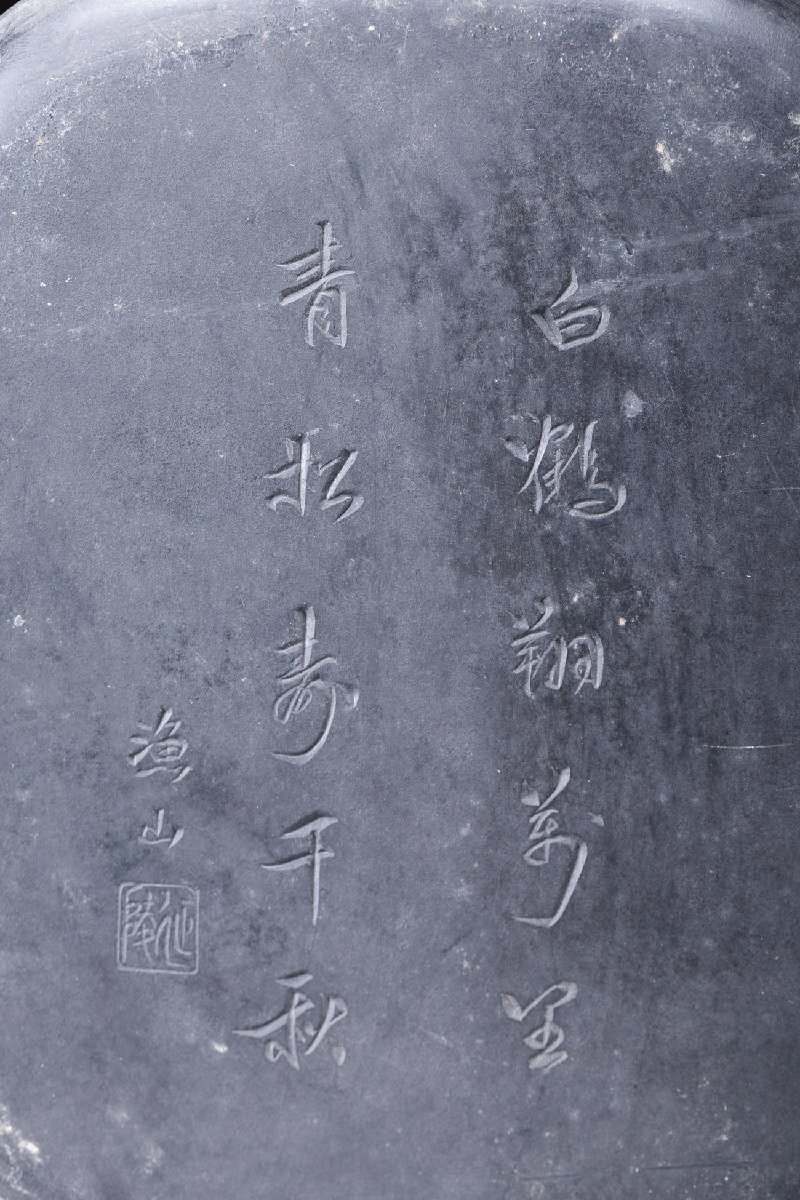 白鶴翔萬里
青松壽千秋
漁山